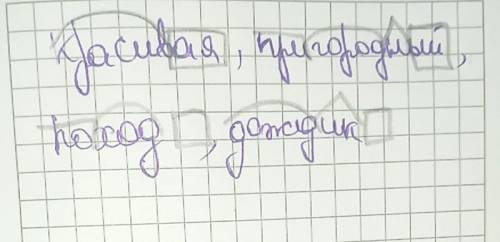 красивая, пригородный,
поход, дождик